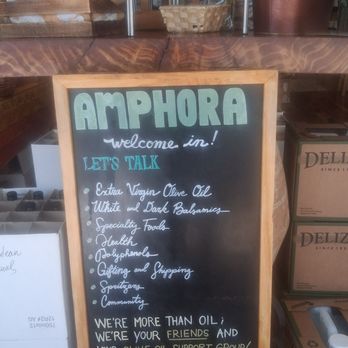 AMPHORA
welcome in!
LET'S TALK
Extra Virgin Olive Oil
White and Dark Balsamics
Specialty Foods
Health
Polyphenols
Gifting and Shipping
Spritzers
Community
WE'RE MORE THAN OIL;
WE'RE YOUR FRIENDS AND
OLIVE OIL SUPPORT GROUP!
DELIZ
DELIZ